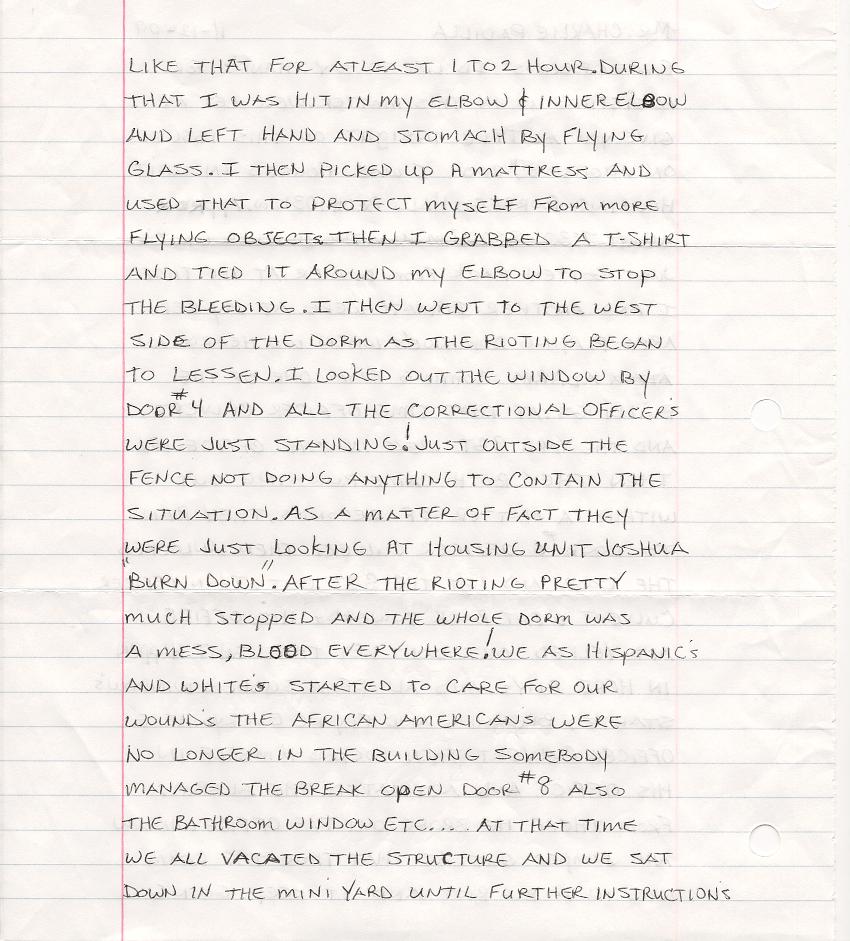 LIKE THAT FOR ATLEAST 1 TO 2 HOUR. DURING
THAT I WAS HIT IN MY ELBOW & INNER ELBOW
AND LEFT HAND AND STOMACH BY FLYING
GLASS. I THEN PICKED UP A MATTRESS AND
USED THAT TO PROTECT MYSELF FROM MORE
FLYING OBJECTS THEN I GRABBED A T-SHIRT
AND TIED IT AROUND MY ELBOW TO STOP
THE BLEEDING. I THEN WENT TO THE WEST
SIDE OF THE DORM AS THE RIOTING BEGAN
TO LESSEN. I LOOKED OUT THE WINDOW BY
DOOR #4 AND ALL THE CORRECTIONAL OFFICER'S
WERE JUST STANDING! JUST OUTSIDE THE
FENCE NOT DOING ANYTHING TO CONTAIN THE
SITUATION. AS A MATTER OF FACT THEY
WERE JUST LOOKING AT HOUSING UNIT JOSHUA
"BURN DOWN". AFTER THE RIOTING PRETTY
MUCH STOPPED AND THE WHOLE DORM WAS
A MESS, BLOOD EVERYWHERE! WE AS HISPANIC'S
AND WHITE'S STARTED TO CARE FOR OUR
WOUND'S THE AFRICAN AMERICAN'S WERE
NO LONGER IN THE BUILDING SOMEBODY
MANAGED THE BREAK OPEN DOOR #8 ALSO
THE BATHROOM WINDOW ETC.... AT THAT TIME
WE ALL VACATED THE STRUCTURE AND WE SAT
DOWN IN THE MINI YARD UNTIL FURTHER INSTRUCTION'S